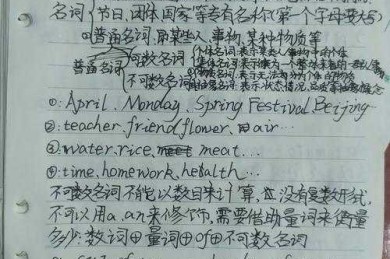 名词 节日、团体国家等专有名称(第一个字母要大写)
普通名词:某些人、事物、某种物质等
普通名词 可数名词 个体名词:表示某类人事物中的个体
集体名词:表示
不可数名词 物质名词:表示无法分为个体的物质
①:April、Monday、Spring Festival、Beijing
②:teacher.friend flower. air…
③:water.rice. meat…
④:time.homework.health…
不可数名词不能以数目来计算,没有复数形式,
不可以用a.an来修饰,需要借助量词来衡量
多少:数词⊕量词⊕of⊕不可数名词